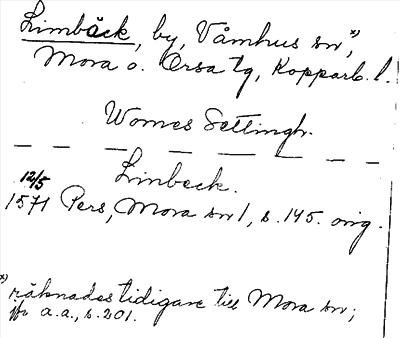 Limbäck, by, Våmhus sn *),
Mora o. Orsa tg, Kopparb. l.
Womes Settingh.
Limbeck.
12/5
1571 Pers, Mora sn 1, s. 145. orig.
*) räknades tidigare till Mora sn;
jfr a.a., s. 201.